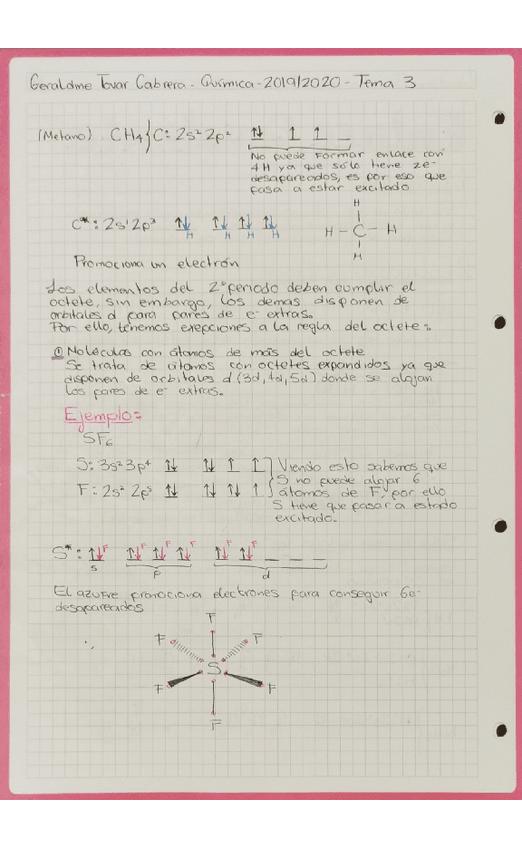 Geraldine Tovar Cabrera - Química - 2019/2020 - Tema 3
(Metano) CH4 } C: 2s² 2p² ↑↓ ↑ ↑ _
No puede formar enlace con
4H ya que sólo tiene 2e-
desapareados, es por eso que
pasa a estar excitado
C*: 2s¹ 2p³ ↑↓ ↑↓ ↑↓ ↑↓
H H H H
H
H - C - H
H
Promociona un electrón
Los elementos del 2º periodo deben cumplir el
octete, sin embargo, los demas disponen de
orbitales d para pares de e- extras.
Por ello, tenemos exepciones a la regla del octete:
① Moléculas con átomos de más del octete
Se trata de átomos con octetes expandidos ya que
disponen de orbitales d (3d, 4d, 5d) donde se alojan
los pares de e- extras.
Ejemplo:
SF6
S: 3s² 3p⁴ ↑↓ ↑↓ ↑ ↑
F: 2s² 2p⁵ ↑↓ ↑↓ ↑↓ ↑
Viendo esto sabemos que
S no puede alojar 6
átomos de F, por ello
S tiene que pasar a estado
excitado.
S*: ↑↓F ↑↓F ↑↓F ↑↓F ↑↓F ↑↓F _ _ _
s p d
El azufre promociona electrones para conseguir 6e-
desapareados
F
F F
S
F F
F